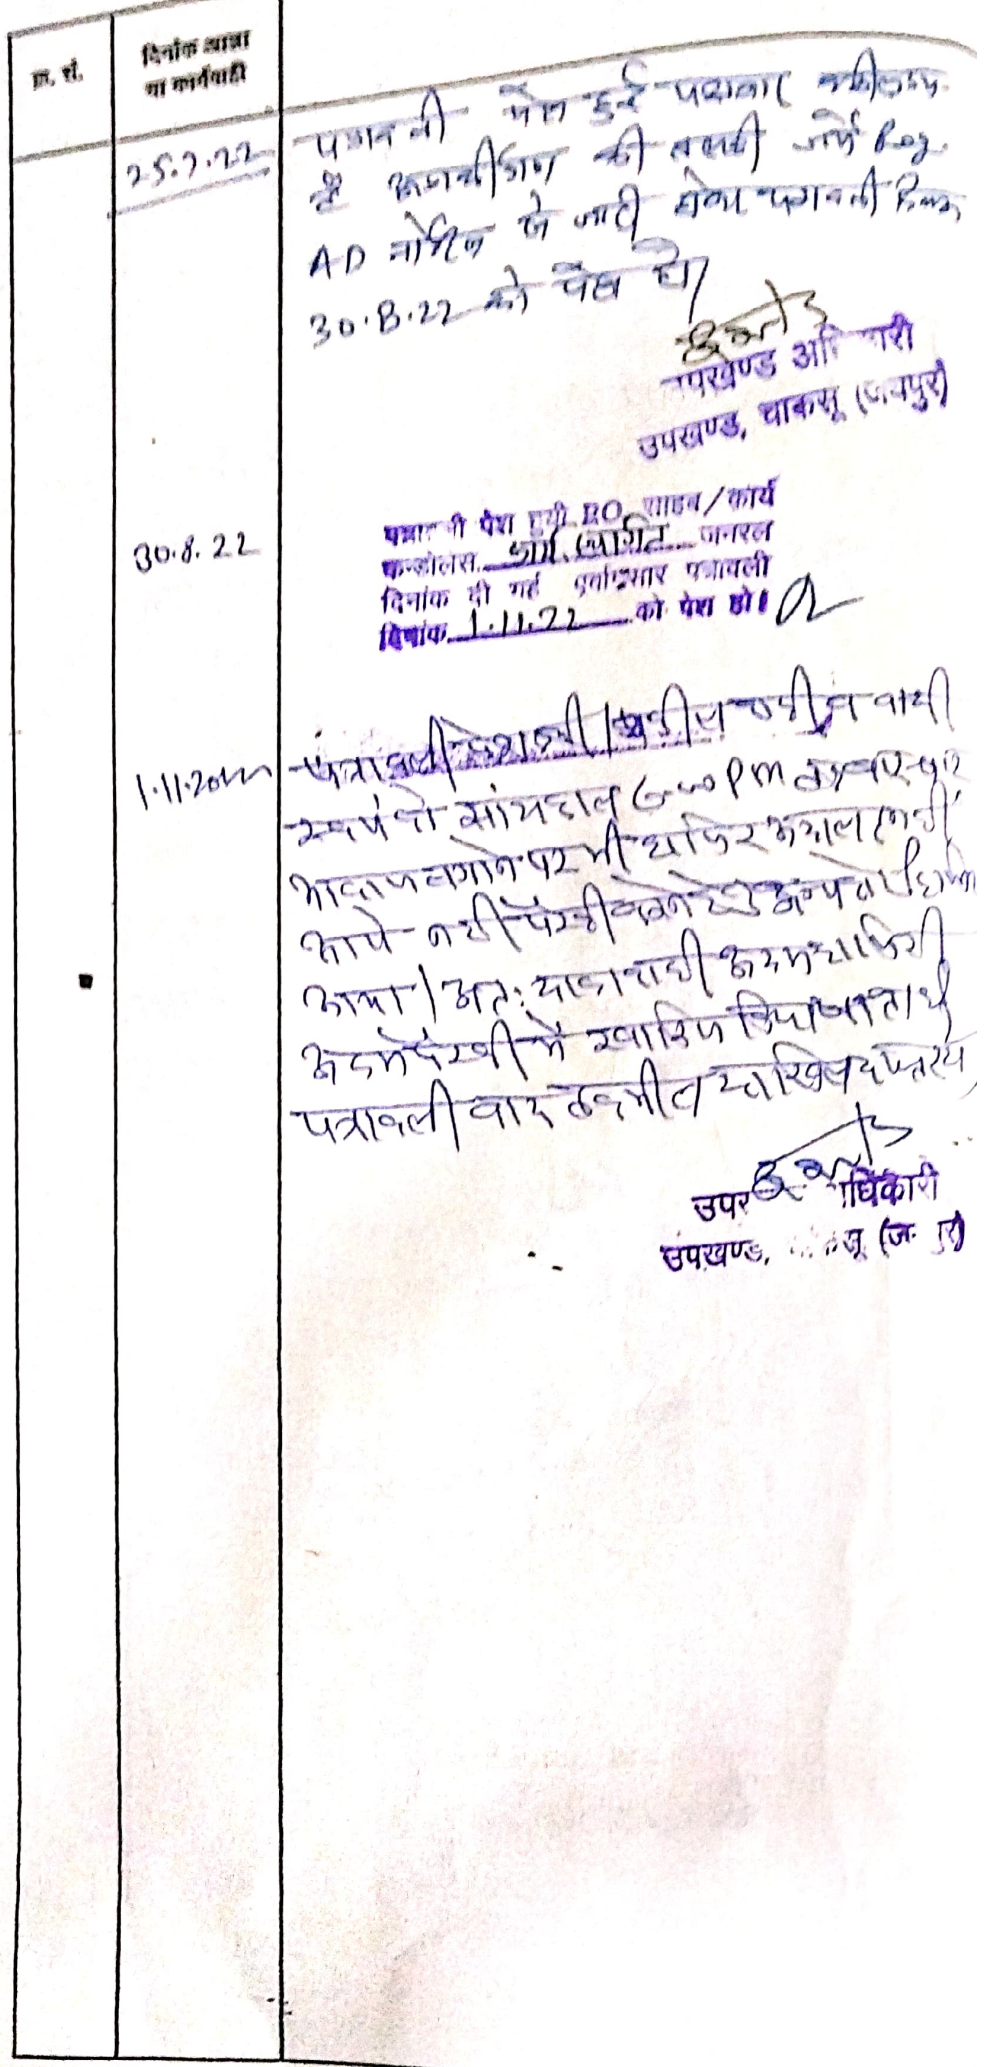 क्र. सं.
दिनांक आज्ञा
या कार्यवाही
25.7.22
पत्रावली पेश हुई
की तलबी जर्ये Reg.
AD नोटिस से जारी
30.8.22 को पेश हो
उपखण्ड अधिकारी
उपखण्ड, चाकसू (जयपुर)
30.8.22
पत्रावली पेश हुयी P.O. साहब/कार्य
कन्डोलेंस कार्य स्थगित जनरल
दिनांक दी गई पूर्वानुसार पत्रावली
दिनांक 1.11.22 को पेश हो।
1.11.2022
पत्रावली पेश हुयी। वकील व वादी
स्वयं को सांयकाल 6.00 PM तक
आवाज लगाने पर भी हाजिर अदालत नहीं
आये नहीं पैरवी करने हेतु अन्य कोई हाजिर
आया। अतः वाद वादी अदम हाजिरी
अदम पैरवी में खारिज किया जाता है
पत्रावली बाद तकमील दाखिल दफ्तर हो
उपखण्ड अधिकारी
उपखण्ड, चाकसू (जयपुर)